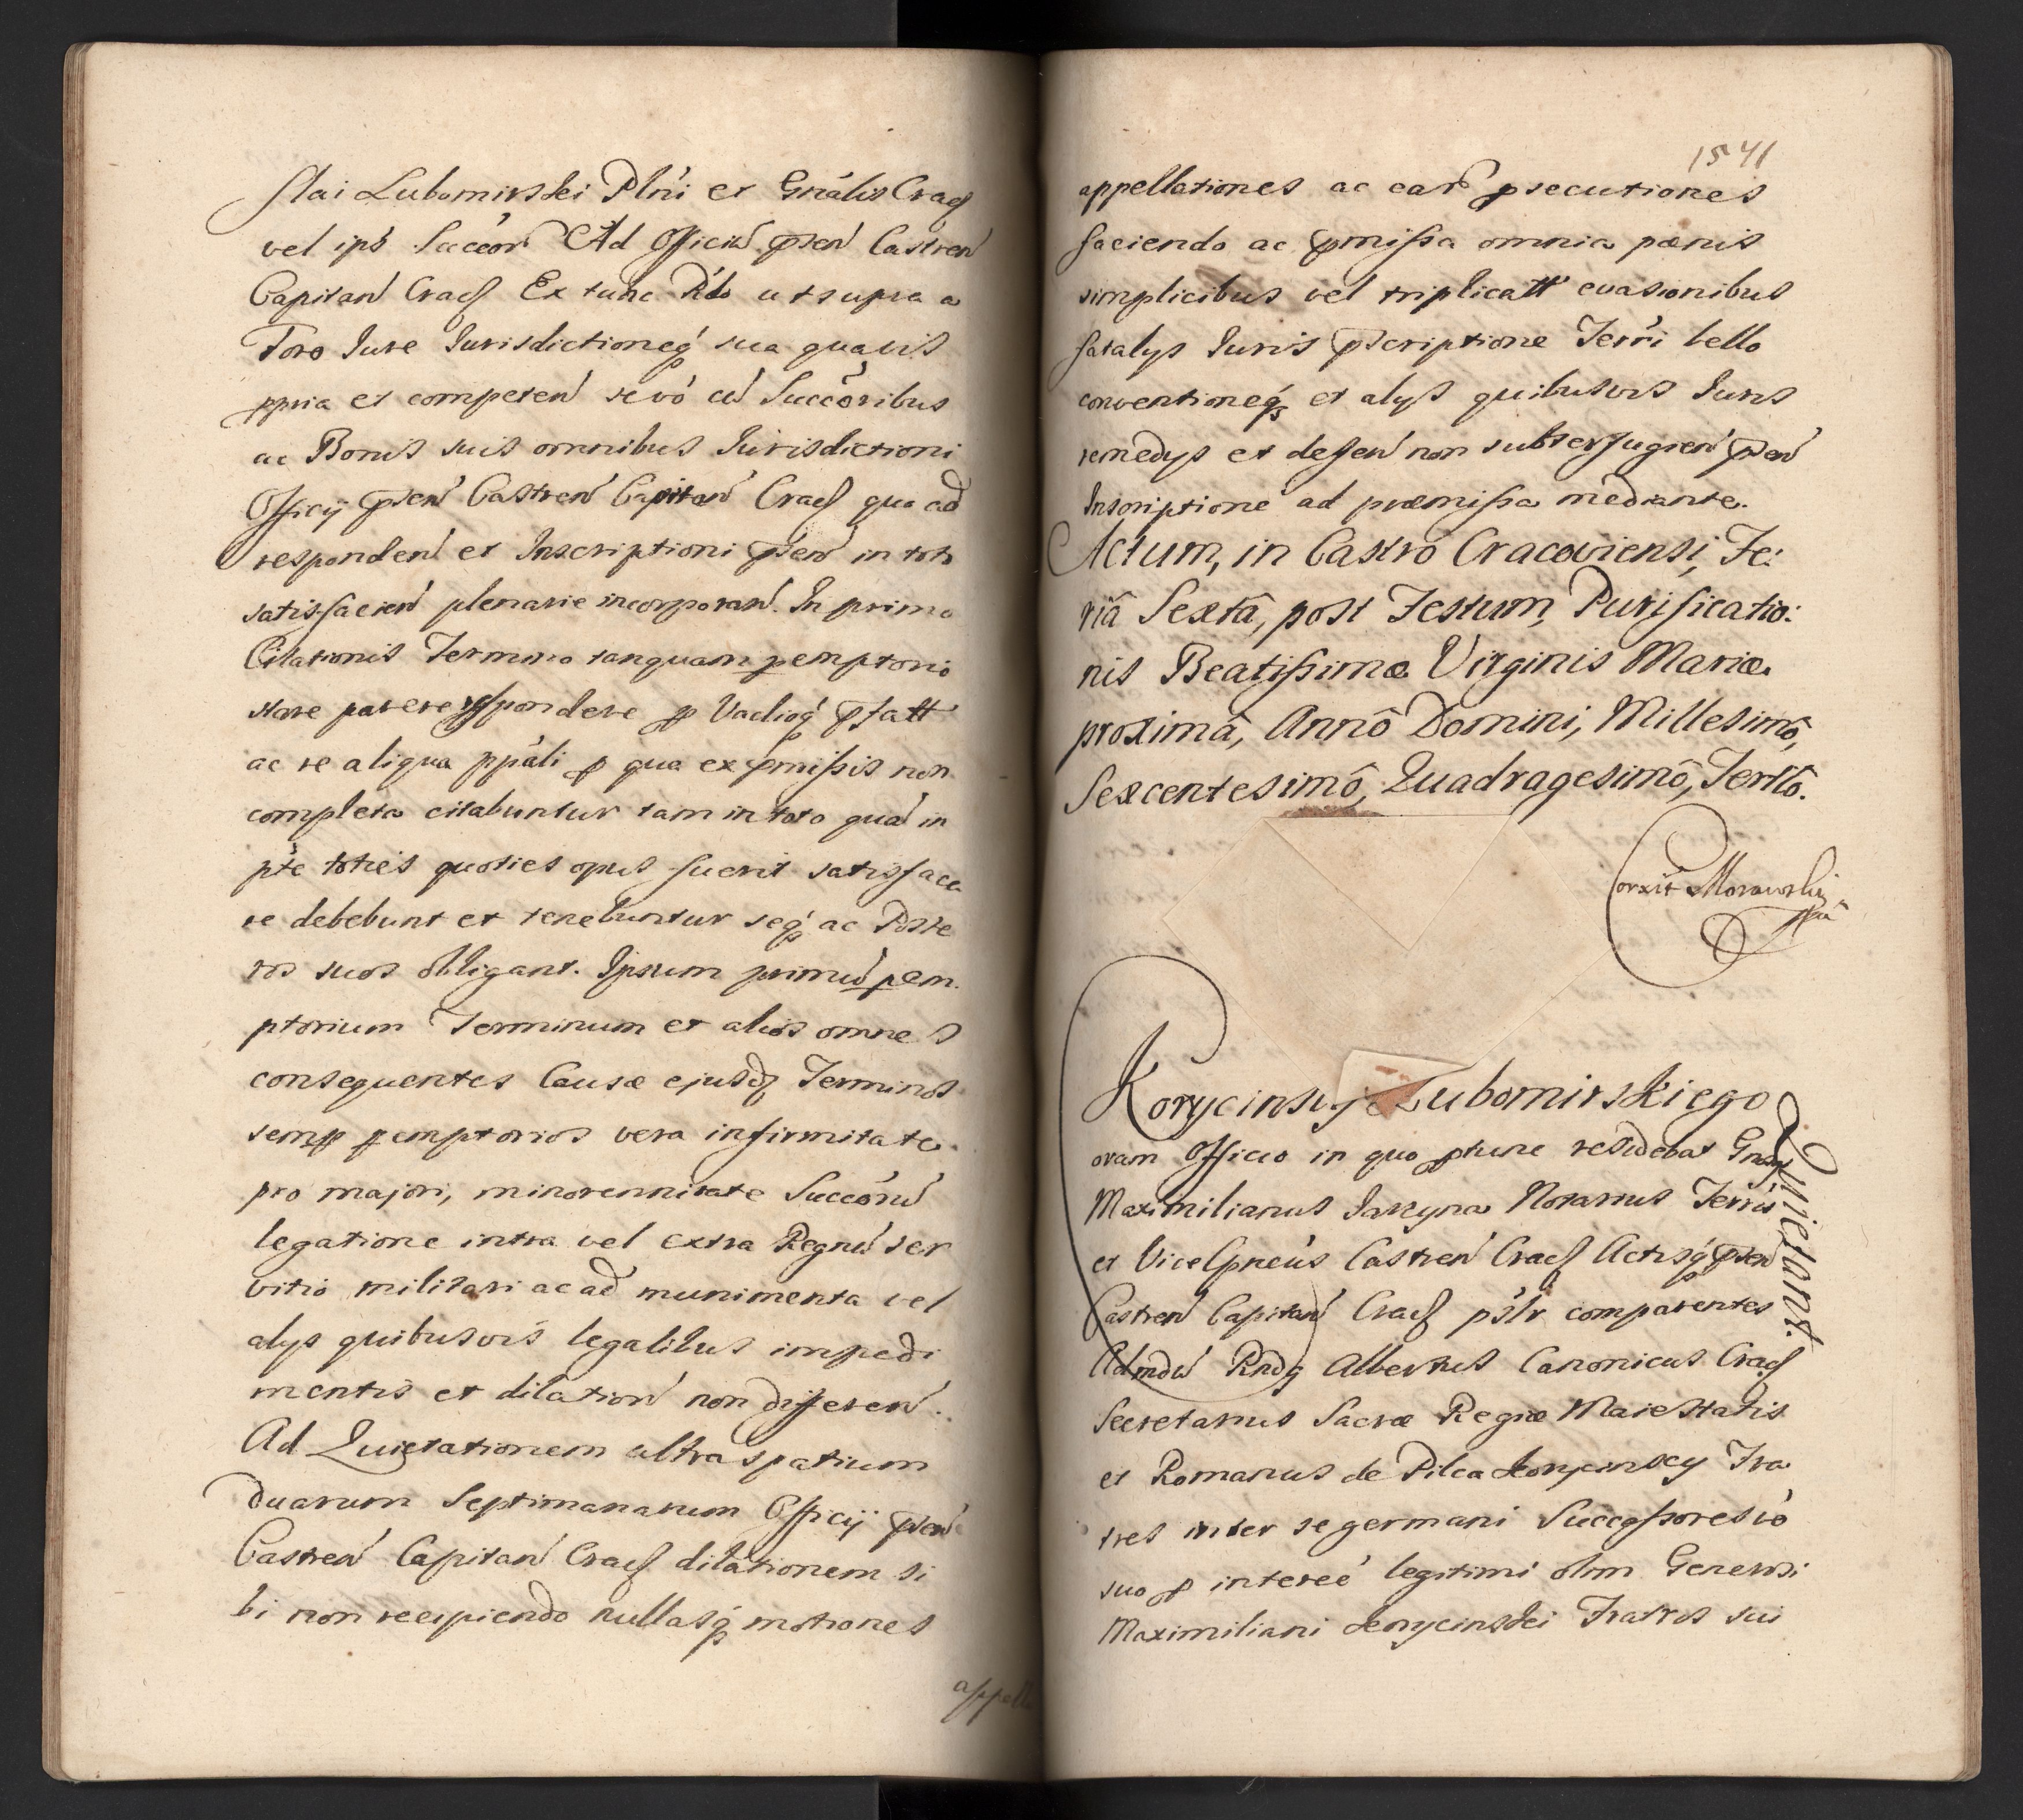 stai Lubomirskei Plni et Gnalis Crac
vel ips Succor Ad Officiu pñen Castren
Capitan Crac Ex tunc Rlo ut supra a
Foro Jure Jurisdictioneq sua quavis
ppria et competen sevo cu Succoribus
ac Bonis suis omnibus Jurisdictioni
Officij pñen Castren Capitan Crac quo ad
responden et Inscriptioni pñen in toto
satisfacien plenarie incorporan. In primo
Citationis Termino tanquam pemptorio
stare parere respondere p Vadioq pfatt
ac re aliqua ppali p qua ex pmissis non
completa citabuntur tam in toto qua in
pte toties quoties opus fuerit satisface
re debebunt et tenebuntur seq ac Poste
ros suos obligant. Ipsum primu pem.
ptorium Terminum et alios omnes
consequentes Causæ ejusdq Terminos
semp pemptorios vera infirmitate
pro majori, minorennitate Succoru
legatione intra vel extra Regnu ser
vitio militari ac ad munimenta vel
alys quibusvis legalibus impedi
mentis et dilation non differen.
Ad Quietationem ultra spatium
duarum Septimanarum Officij pñen
Castren Capitan Crac dilationem si
bi non recipiendo nullasq motiones
appella
1541
appellationes ac ear psecutiones
faciendo ac pmissa omnia pœnis
simplicibus vel triplicatt evasionibus
fatalys Juris pscriptione Terri bello
conventioneq et alys quibusvis Juris
remedys et defen non subterfugien pñen
Inscriptione ad præmissa mediante.
Actum, in Castro Cracoviensi, Fe:
riâ Sextâ, post Festum, Purificatio:
nis Beatissimæ Virginis Mariæ
proximâ, Annô Domini, Millesimô,
Sexcentesimô, Quadragesimô, Tertiô.
Corxit Morawski
mpa
Korycinscy Lubomirskiego
Quietant.
Coram Officio in quo ptunc residebat Gnsq
Maximilianus Jarzyna Notarius Terris
et ViceCpneus Castren Crac Actisq pñen
Castren Capitan Crac pslr comparentes
Admdu Rndq Albertus Canonicus Crac
Secretarius Sacræ Regiæ Maiestatis
et Romanus de Pilca Korycinscy Fra
tres inter se germani Successoresvo
suo p interee legitimi olim Generosi
Maximiliani Korycinskei Fratris sui